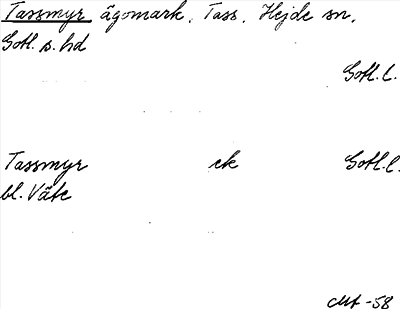 Tassmyr ägomark, Tass, Hejde sn,
Gotl. s. hd
Gotl. l.
Tassmyr ek Gotl. l.
bl. Väte
-58